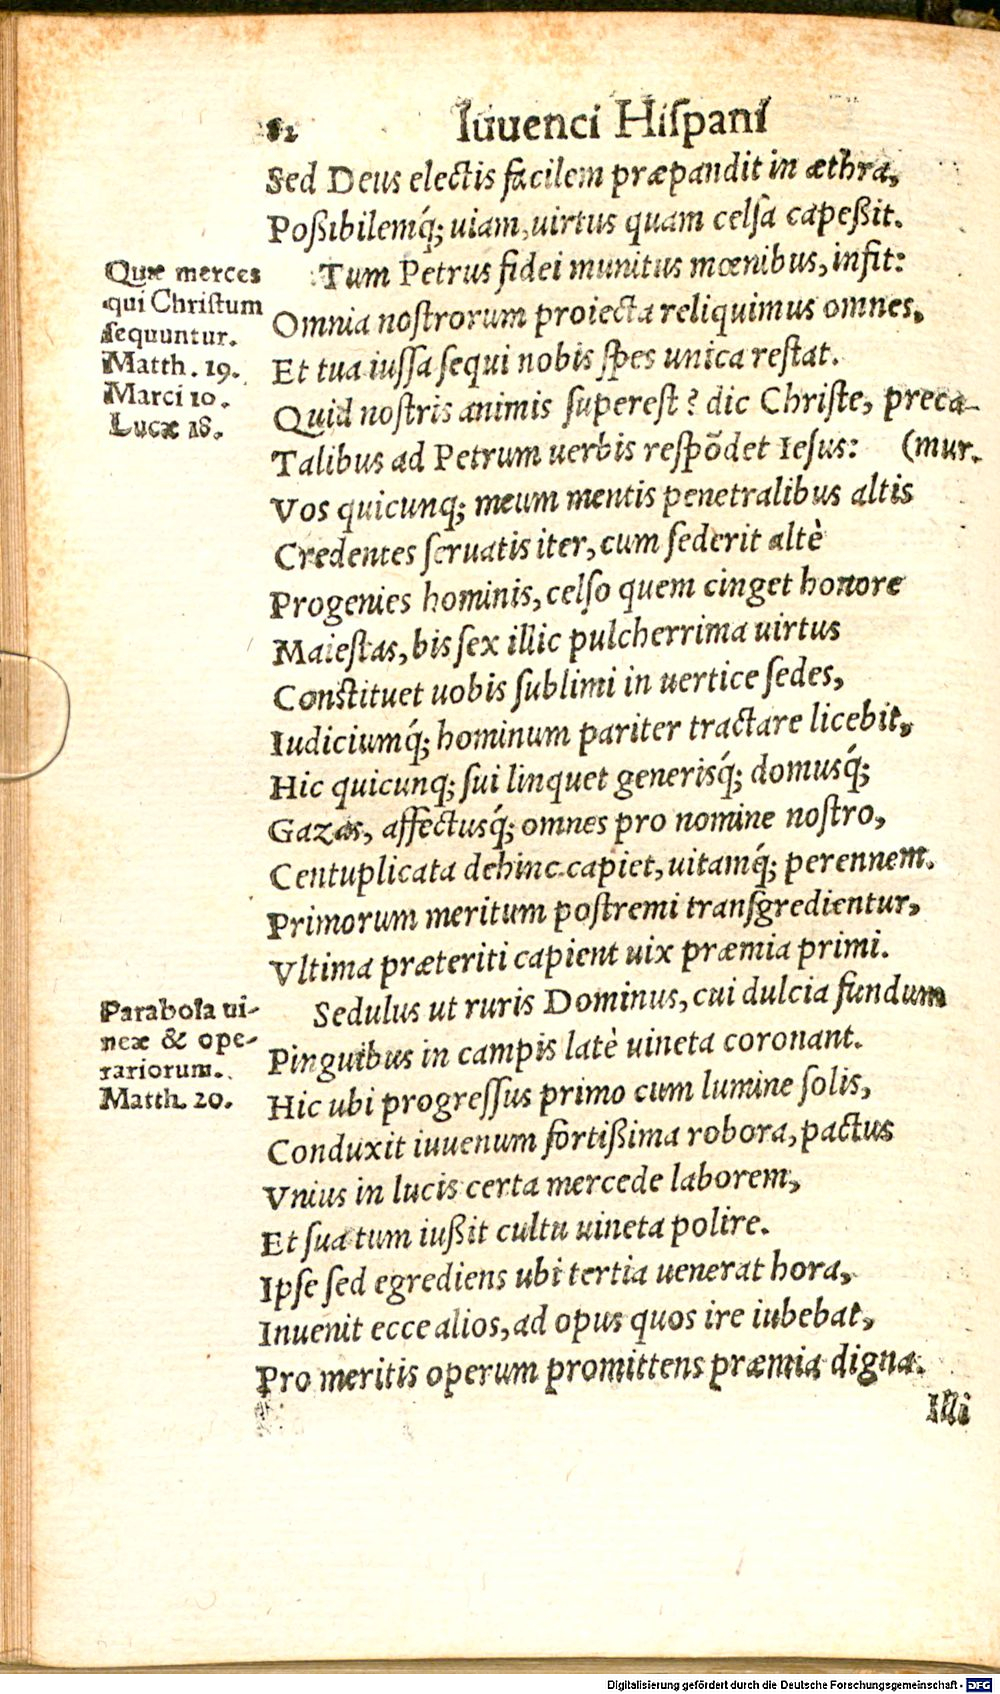 82 Iuuenci Hiſpani
Sed Deus electis facilem præpandit in æthra,
Poßibilemq́; uiam, uirtus quam celſa capeßit.
Tum Petrus fidei munitus mœnibus, infit:
Omnia noſtrorum proiecta reliquimus omnes,
Et tua iuſſa ſequi nobis ſpes unica reſtat.
Quid noſtris animis ſupereſt? dic Chriſte, preca-
Talibus ad Petrum uerbis reſpõdet Ieſus: (mur.
Vos quicunq; meum mentis penetralibus altis
Credentes ſeruatis iter, cum ſederit altè
Progenies hominis, celſo quem cinget honore
Maieſtas, bis ſex illic pulcherrima uirtus
Conſtituet uobis ſublimi in uertice ſedes,
Iudiciumq́; hominum pariter tractare licebit,
Hic quicunq; ſui linquet generisq́; domusq́;
Gazas, affectusq́; omnes pro nomine noſtro,
Centuplicata dehinc capiet, uitamq́; perennem.
Primorum meritum poſtremi tranſgredientur,
Vltima præteriti capient uix præmia primi.
Sedulus ut ruris Dominus, cui dulcia fundum
Pinguibus in campis latè uineta coronant.
Hic ubi progreſſus primo cum lumine ſolis,
Conduxit iuuenum fortißima robora, pactus
Vnius in lucis certa mercede laborem,
Et ſua tum iußit cultu uineta polire.
Ipſe ſed egrediens ubi tertia uenerat hora,
Inuenit ecce alios, ad opus quos ire iubebat,
Pro meritis operum promittens præmia digna.
Illi
Quæ merces
qui Chriſtum
ſequuntur.
Matth. 19.
Marci 10.
Lucæ 18.
Parabola ui-
neæ & ope-
rariorum.
Matth. 20.
Digitalisierung gefördert durch die Deutsche Forschungsgemeinschaft - DFG